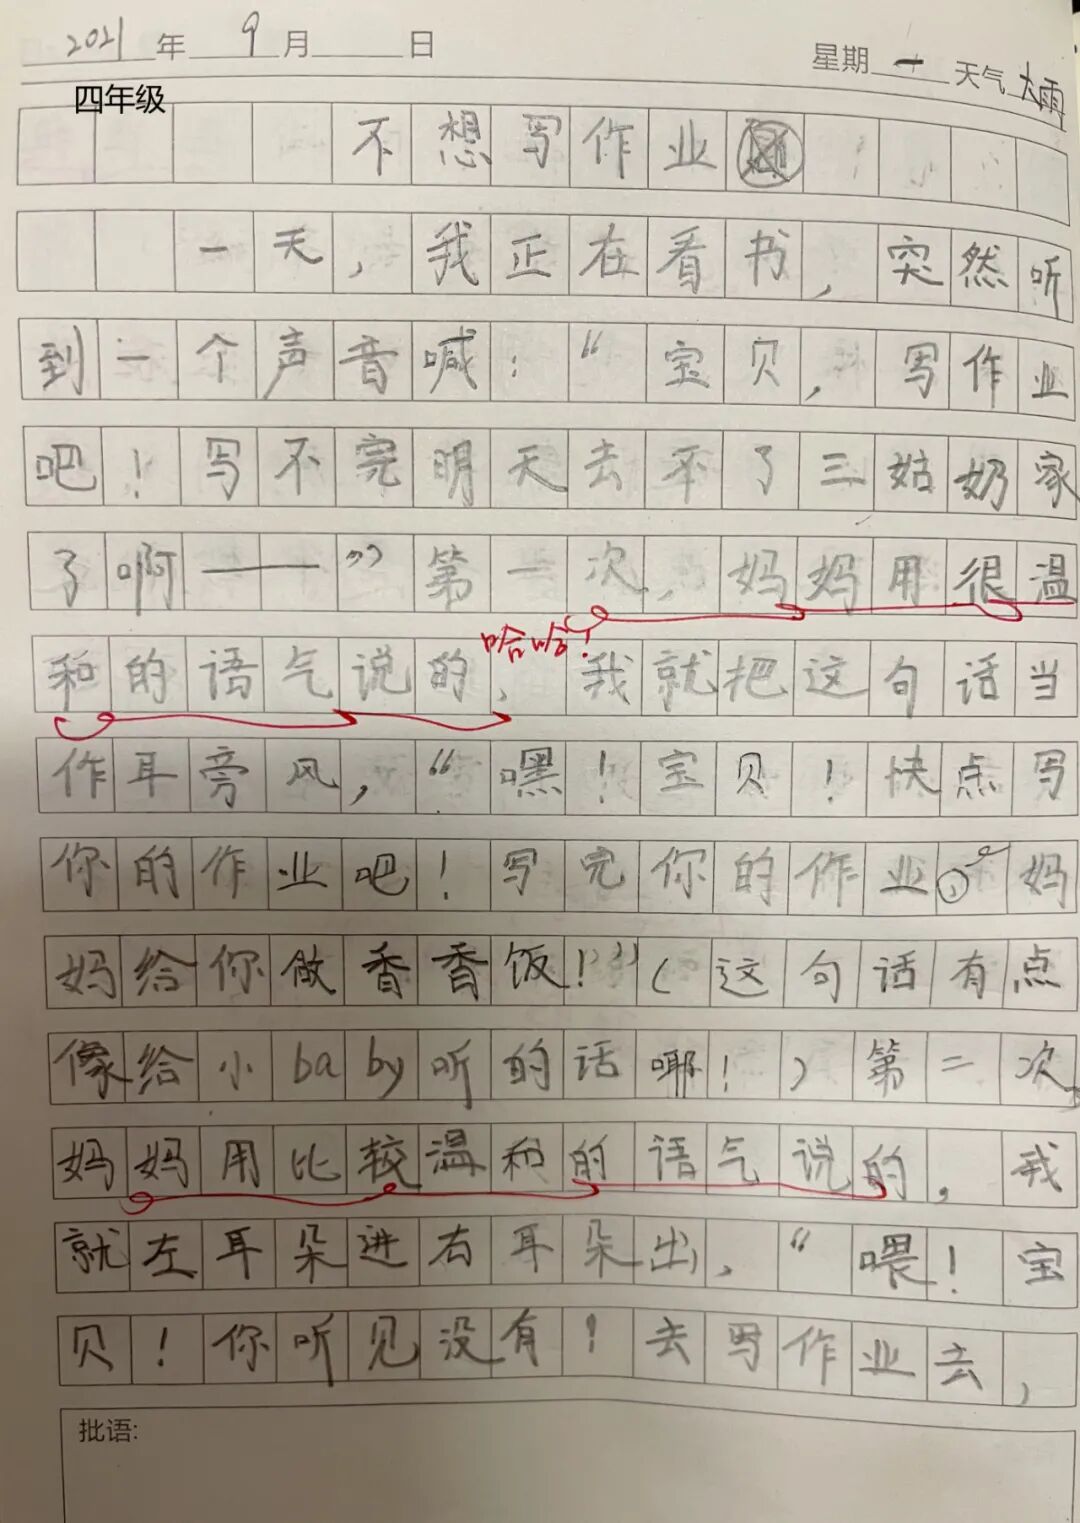 2021年9月 日 星期一天气大雨
四年级
不想写作业
一天，我正在看书，突然听
到一个声音喊：“宝贝，写作业
吧！写不完明天去不了三姑奶家
了啊——”第一次，妈妈用很温
哈哈！
和的语气说的，我就把这句话当
作耳旁风，“嘿！宝贝！快点写
你的作业吧！写完你的作业，妈
妈给你做香香饭！”（这句话有点
像给小baby听的话哪！）第二次，
妈妈用比较温和的语气说的，我
就左耳朵进右耳朵出，“喂！宝
贝！你听见没有！去写作业去，
批语: